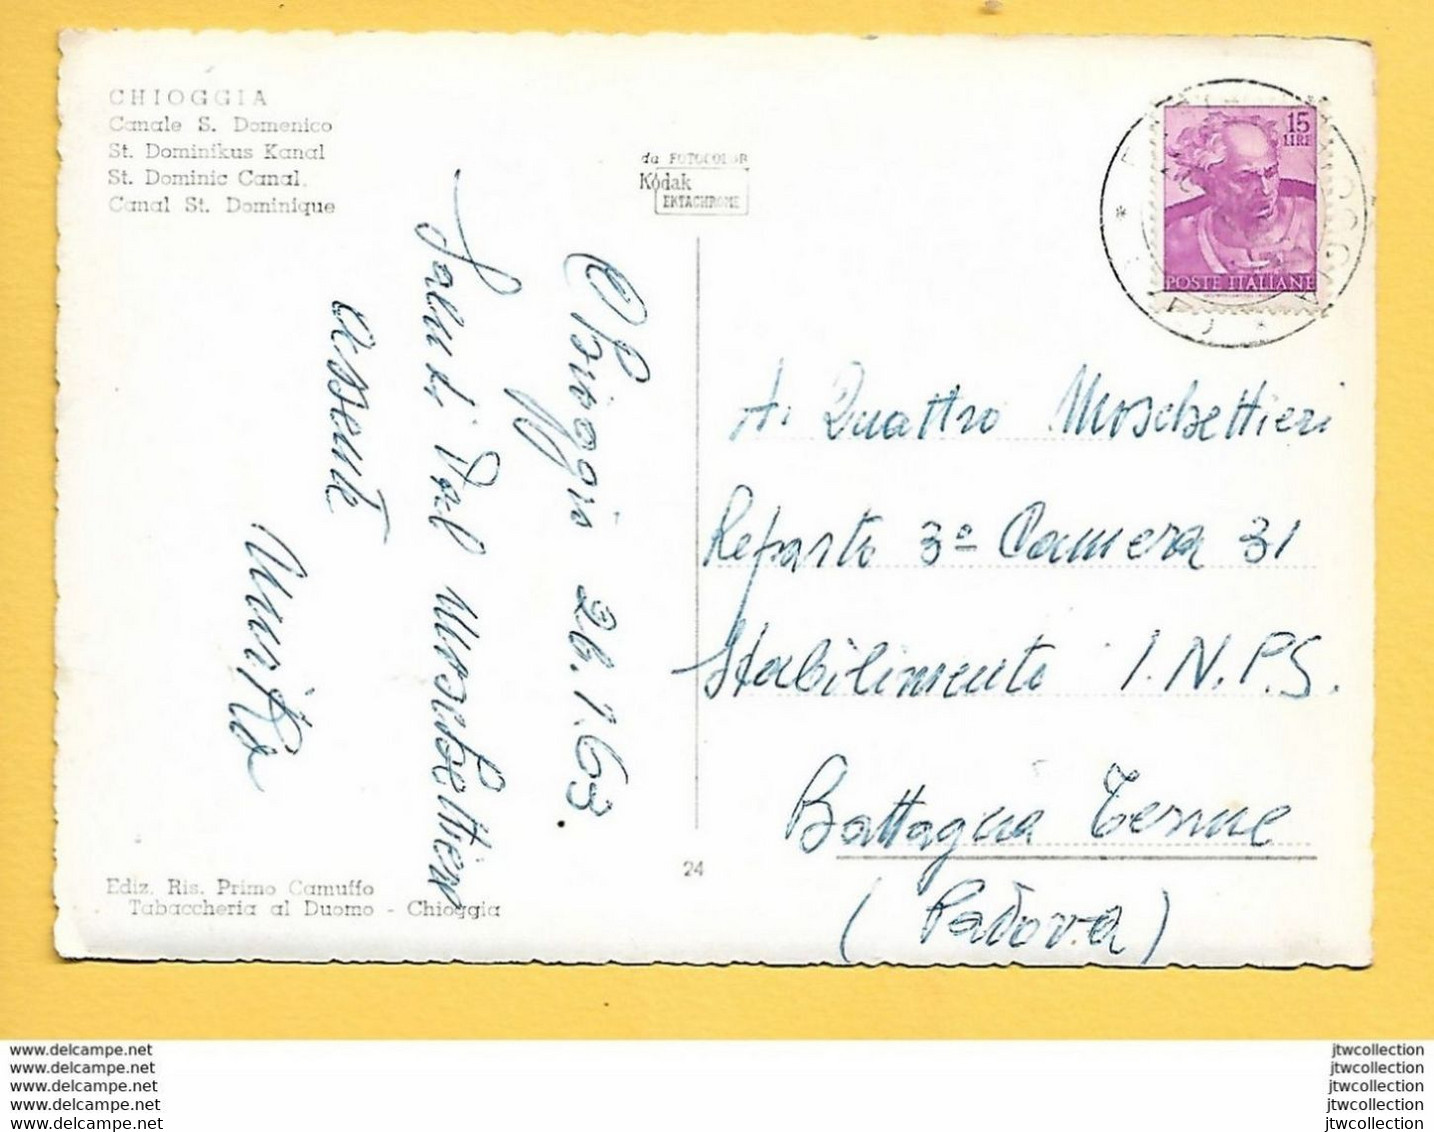 CHIOGGIA
Canale S. Domenico
St. Dominikus Kanal
St. Dominic Canal
Canal St. Dominique
da FOTOCOLOR
Kodak
EKTACHROME
15
LIRE
POSTE ITALIANE
Chioggia 26.1.63
Saluti dal Moschettiere
assente
A. Quattro Moschettieri
Reparto 3º Camera 31
Stabilimento I.N.P.S.
Battaglia Terme
(Padova)
Ediz. Ris. Primo Camuffo
Tabaccheria al Duomo - Chioggia
24
www.delcampe.net
www.delcampe.net
www.delcampe.net
www.delcampe.net
www.delcampe.net
jtwcollection
jtwcollection
jtwcollection
jtwcollection
jtwcollection